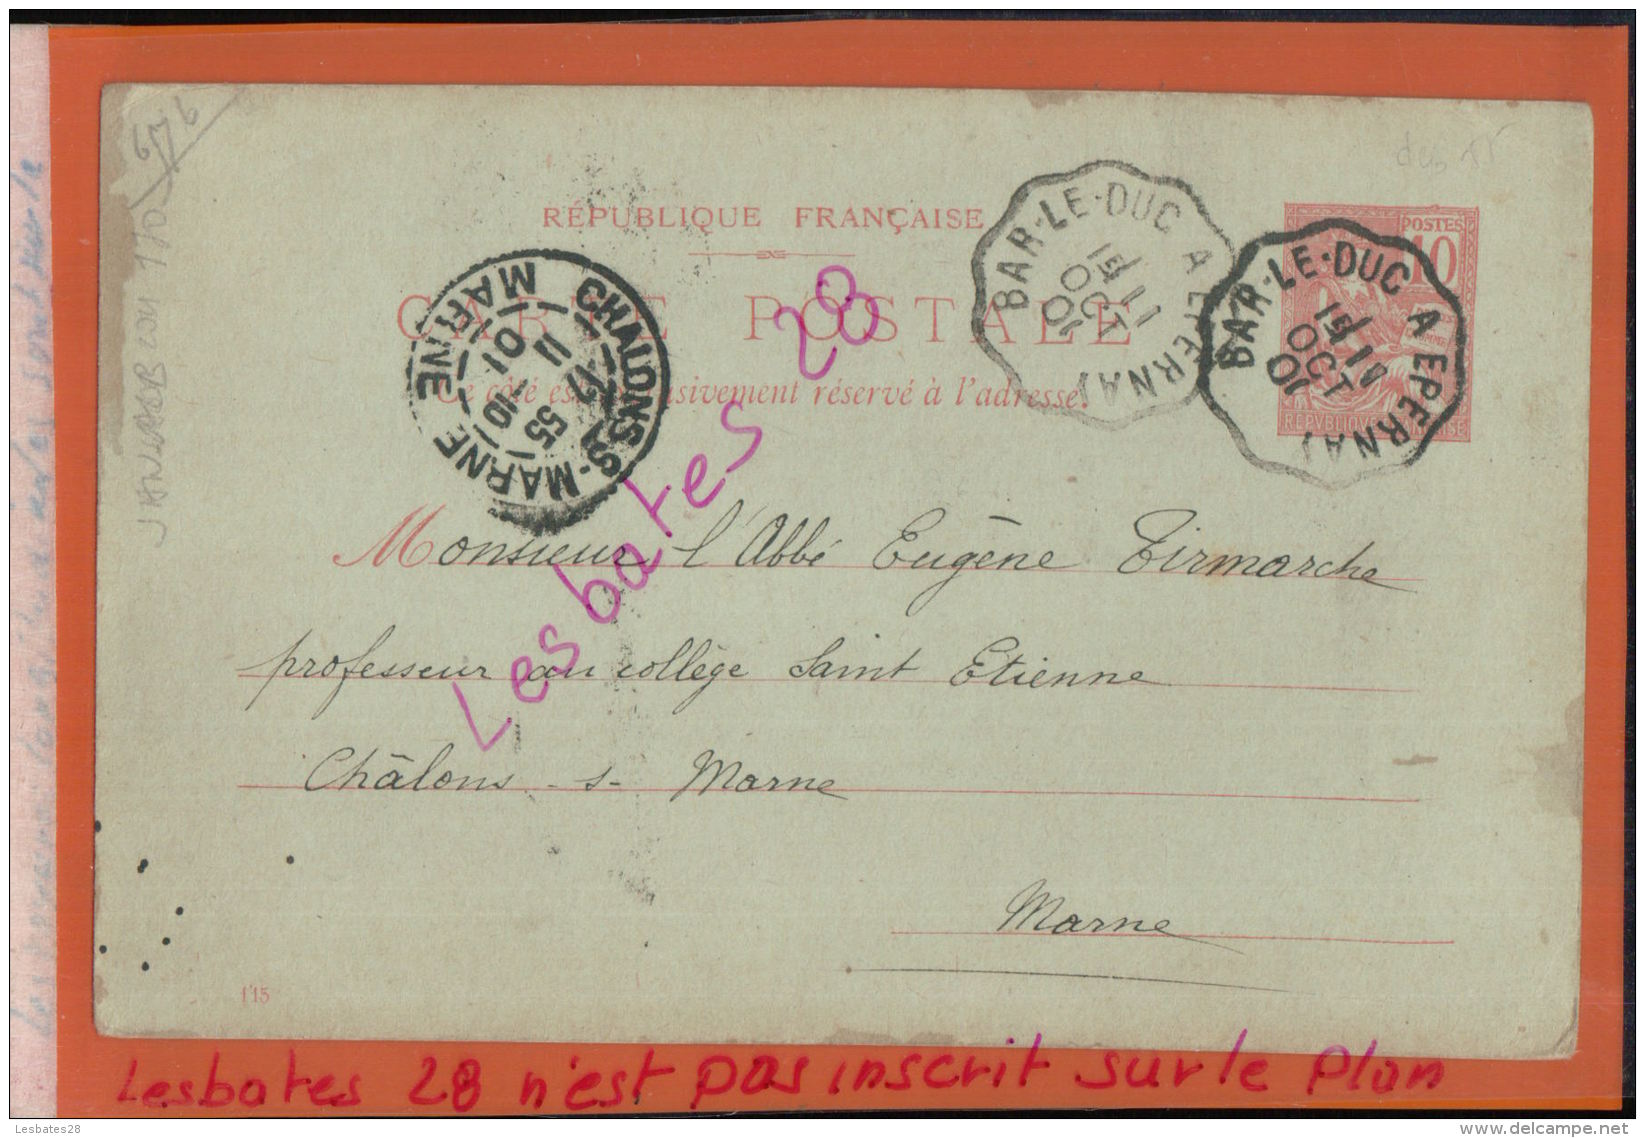 RÉPUBLIQUE FRANÇAISE
CARTE POSTALE
Ce côté est exclusivement réservé à l'adresse.
BAR-LE-DUC A EPERNAY
1E
11
OCT
01
BAR-LE-DUC A EPERNAY
1E
11
OCT
01
POSTES
10
CHALONS-S-MARNE
MARNE
11
55
10
01
Lesbates 28
Monsieur l'Abbé Eugène Tirmarche
professeur au collège Saint Etienne
Châlons - s - Marne
Marne
115
Lesbates 28 n'est pas inscrit sur le Plan
Lesbates28
delcampe.net